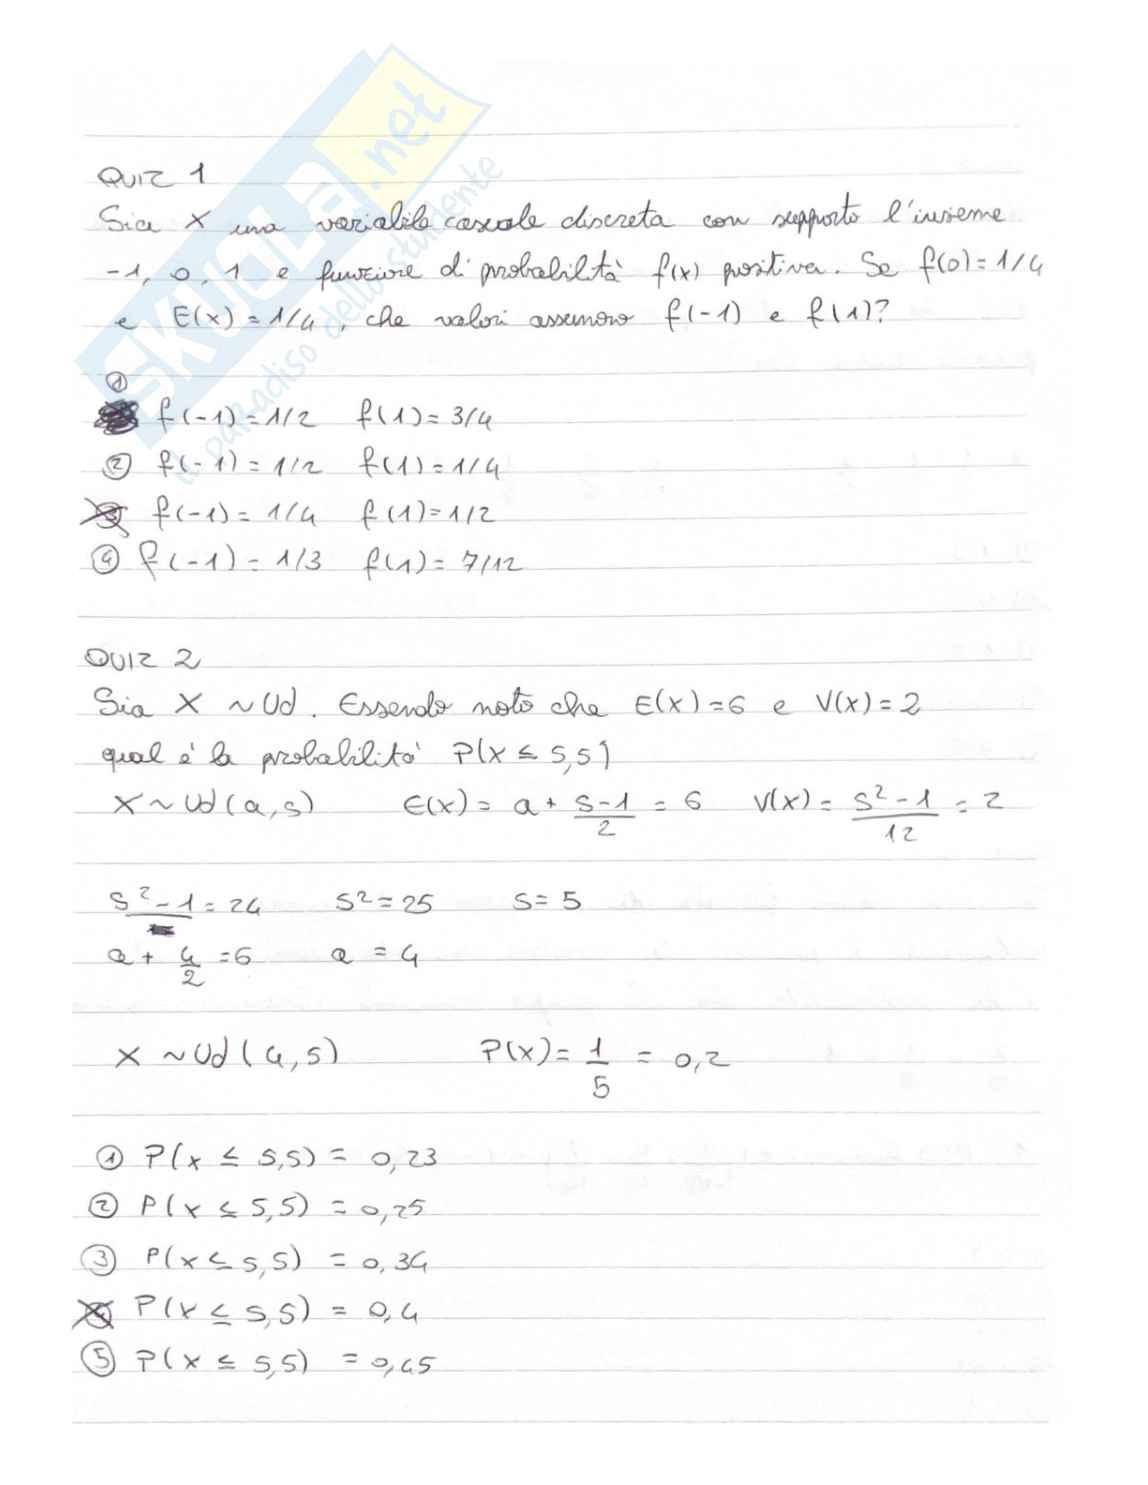 SKUOLA.net
il paradiso dello studente
QUIZ 1
Sia X una variabile casuale discreta con supporto l'insieme
-1, 0, 1 e funzione di probabilità f(x) positiva. Se f(0)=1/4
e E(x)=1/4, che valori assumono f(-1) e f(1)?
① f(-1)=1/2 f(1)=3/4
② f(-1)=1/2 f(1)=1/4
③ f(-1)=1/4 f(1)=1/2
④ f(-1)=1/3 f(1)=7/12
QUIZ 2
Sia X ~Ud. Essendo noto che E(x)=6 e V(x)=2
qual è la probabilità P(X ≤ 5,5)
X~Ud(a,s) E(x)= a+ (s-1)/2 = 6 V(x)= (s²-1)/12 = 2
s²-1=24 s²=25 s=5
a+ 4/2 =6 a=4
X ~Ud(4,5) P(x)= 1/5 = 0,2
① P(x ≤ 5,5) = 0,23
② P(x ≤ 5,5) = 0,25
③ P(x ≤ 5,5) = 0,34
④ P(x ≤ 5,5) = 0,4
⑤ P(x ≤ 5,5) = 0,45